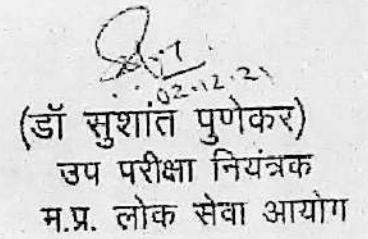 02.12.21
(डॉ सुशांत पुणेकर)
उप परीक्षा नियंत्रक
म.प्र. लोक सेवा आयोग